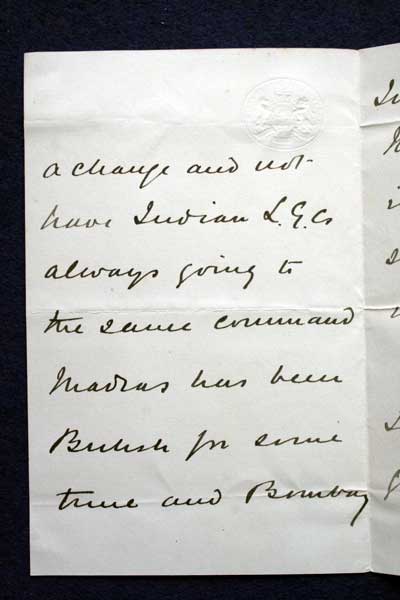 a change and not
have Indian L.G.Cs
always going to
the same command
Madras has been
British for some
time and Bombay